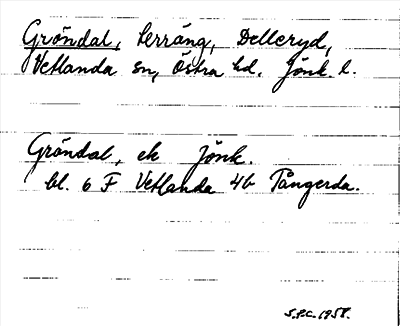 Gröndal, terräng, Delleryd,
Vetlanda sn, Östra hd. Jönk. l.
Gröndal, ek Jönk.
bl. 6 F Vetlanda 4b Tångerda.
S.P.C. 1958.